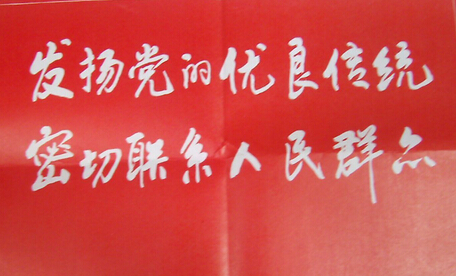 发扬党的优良传统
密切联系人民群众